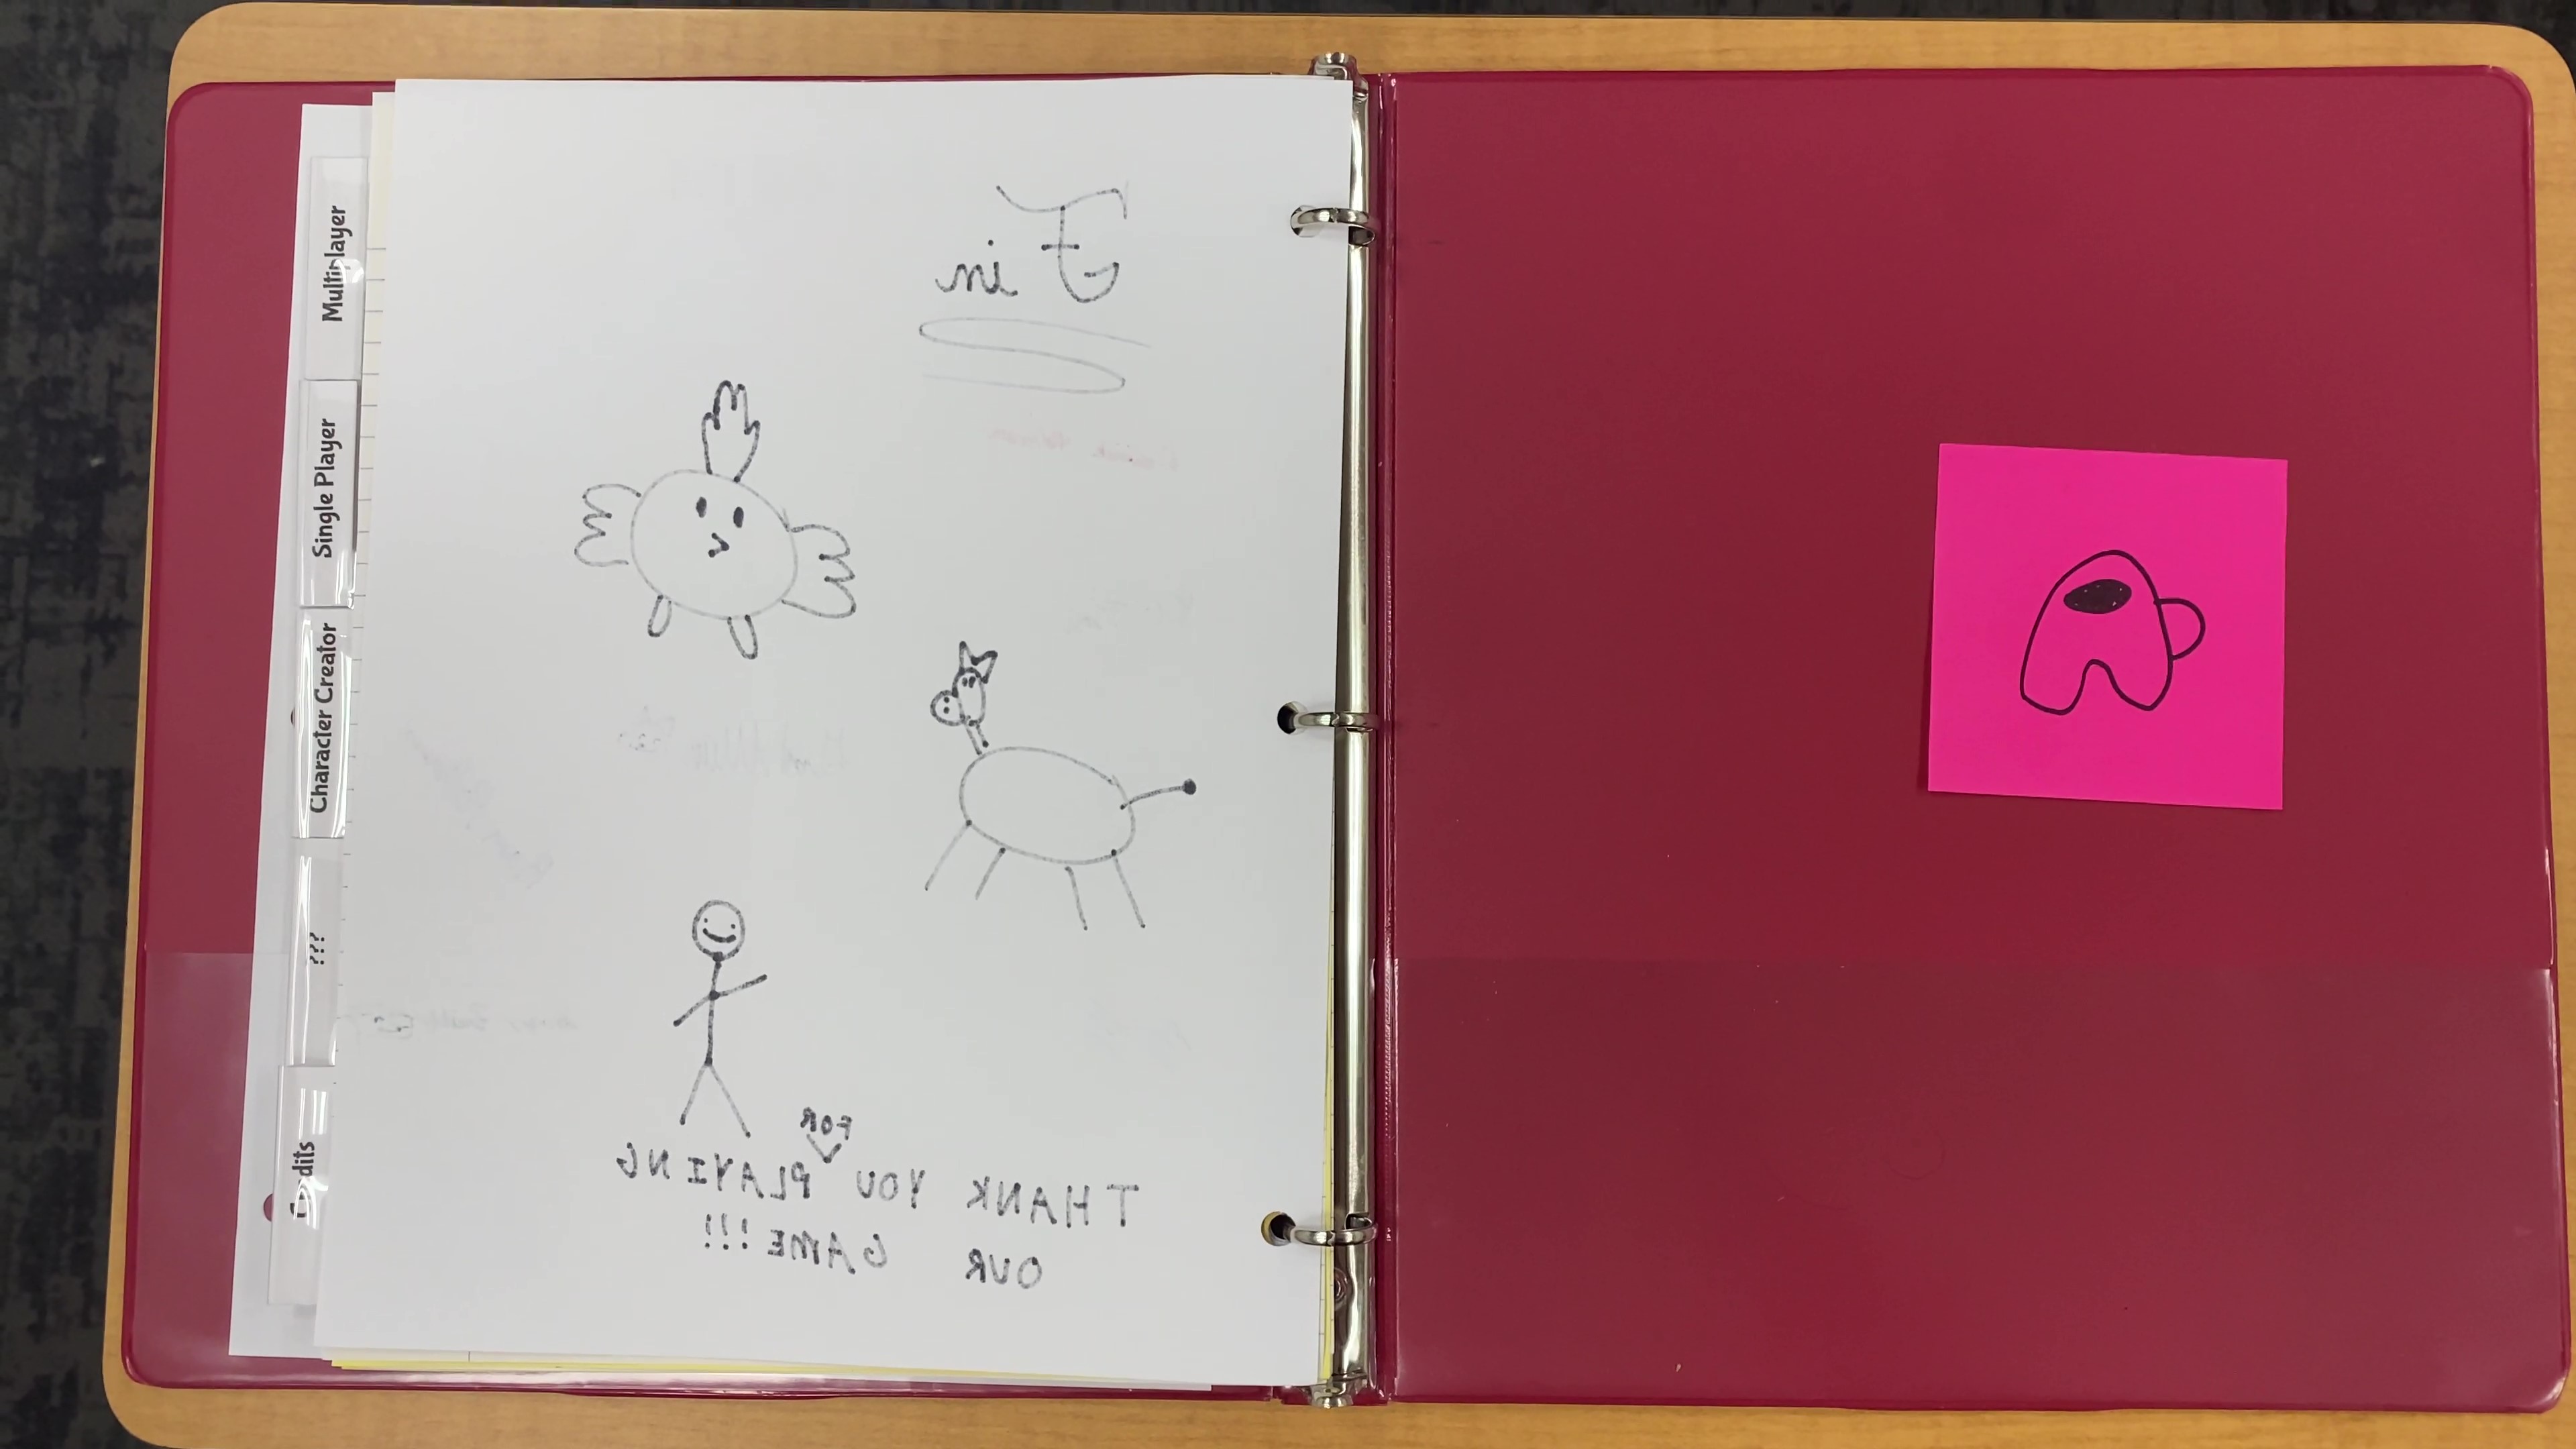 Multiplayer
Single Player
Character Creator
???
Credits
Fin
FOR
THANK YOU PLAYING
OUR GAME!!!